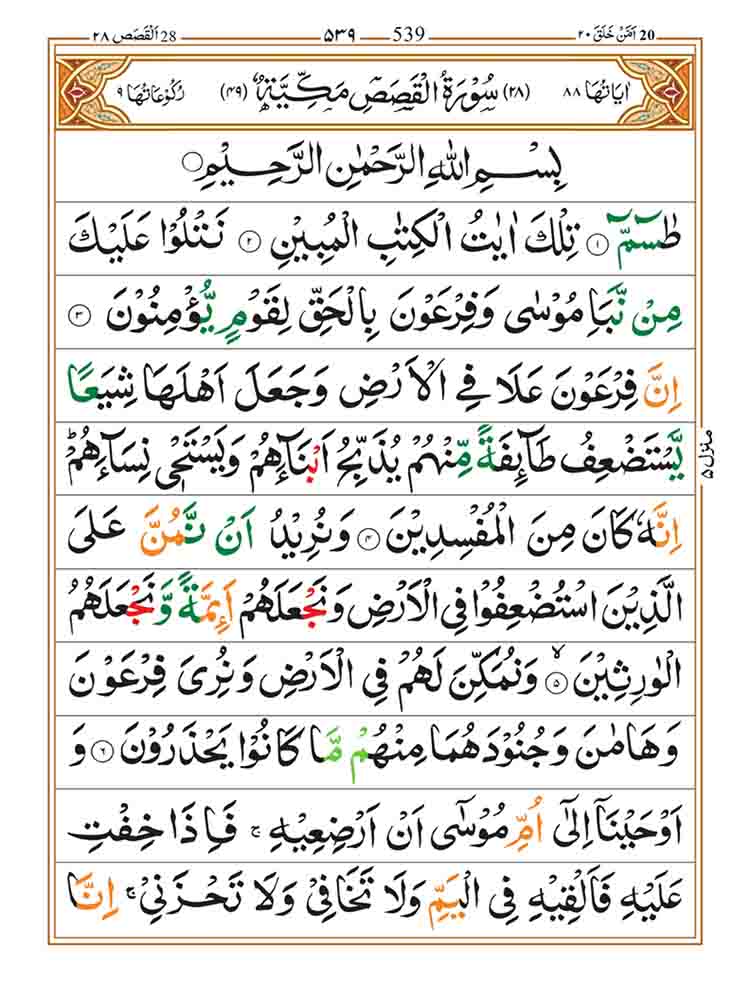 20 اَمَّنْ خَلَقَ ٢٠ 539 ٥٣٩ 28 اَلْقَصَص ٢٨
اٰيَاتُهَا ٨٨ (٢٨) سُوْرَةُ الْقَصَصِ مَكِّيَّةٌ (٤٩) رُكُوْعَاتُهَا ٩
بِسْمِ اللّٰهِ الرَّحْمٰنِ الرَّحِيْمِ
طٰسٓمّٓ ١ تِلْكَ اٰيٰتُ الْكِتٰبِ الْمُبِيْنِ ٢ نَتْلُوْا عَلَيْكَ
مِنْ نَّبَاِ مُوْسٰى وَفِرْعَوْنَ بِالْحَقِّ لِقَوْمٍ يُّؤْمِنُوْنَ ٣
اِنَّ فِرْعَوْنَ عَلَا فِي الْاَرْضِ وَجَعَلَ اَهْلَهَا شِيَعًا
يَّسْتَضْعِفُ طَآئِفَةً مِّنْهُمْ يُذَبِّحُ اَبْنَآءَهُمْ وَيَسْتَحْيٖ نِسَآءَهُمْ ؕ
اِنَّهٗ كَانَ مِنَ الْمُفْسِدِيْنَ ٤ وَنُرِيْدُ اَنْ نَّمُنَّ عَلَى
الَّذِيْنَ اسْتُضْعِفُوْا فِي الْاَرْضِ وَنَجْعَلَهُمْ اَئِمَّةً وَّنَجْعَلَهُمُ
الْوٰرِثِيْنَ ۙ ٥ وَنُمَكِّنَ لَهُمْ فِي الْاَرْضِ وَنُرِيَ فِرْعَوْنَ
وَهَامٰنَ وَجُنُوْدَهُمَا مِنْهُمْ مَّا كَانُوْا يَحْذَرُوْنَ ٦ وَ
اَوْحَيْنَآ اِلٰٓى اُمِّ مُوْسٰٓى اَنْ اَرْضِعِيْهِ ۚ فَاِذَا خِفْتِ
عَلَيْهِ فَاَلْقِيْهِ فِي الْيَمِّ وَلَا تَخَافِيْ وَلَا تَحْزَنِيْ ۚ اِنَّا
منزل ٥